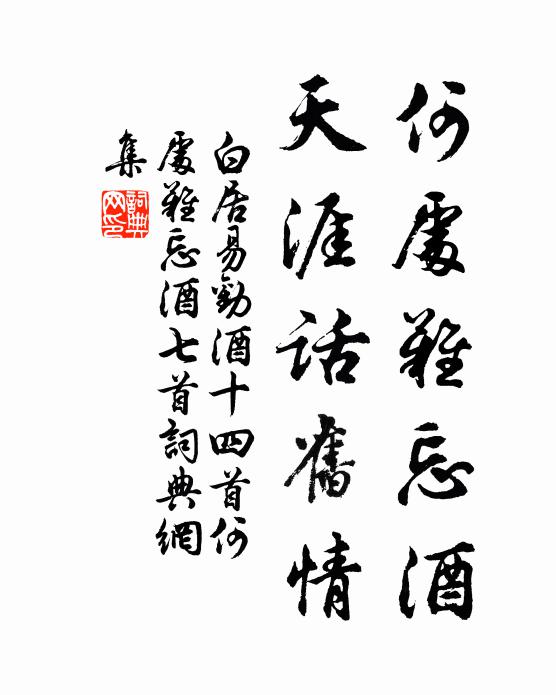 何處難忘酒
天涯話舊情
白居易勸酒十四首何
處難忘酒七首詞典網
集
詞典
网印